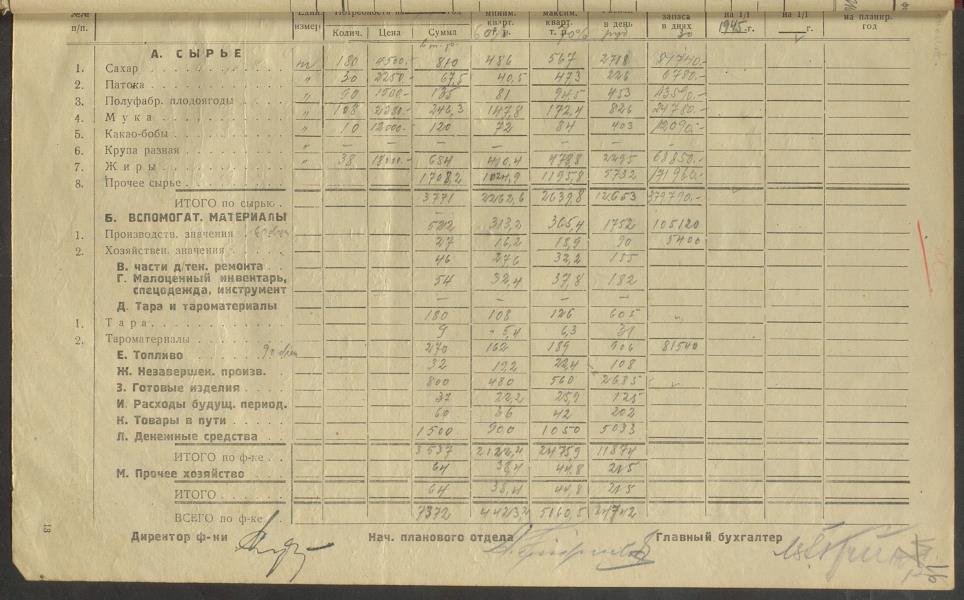 №№ п/п. Един. измер. Колич. Цена Сумма миним. кварт. т. р. максим. кварт. т. р. в день запаса в днях на 1/I 1945 г. на 1/I г. на планир. год
А. СЫРЬЕ
1. Сахар т 180 4500.- 810 486 567 2718 81740.-
2. Патока " 30 2250.- 67,5 40,5 226 6780.-
3. Полуфабр. плодоягоды " 90 1500.- 135 81 94,5 453 13590.-
4. Мука " 108 147,8 172,4 826 24780.-
5. Какао-бобы " 10 12000.- 120 72 84 403 12090.-
6. Крупа разная " — — — —
7. Жиры " 38 18000.- 684 410,4 478,8 2295 68850.-
8. Прочее сырье 1708,2 1024,9 1195,8 5732 171960.-
ИТОГО по сырью 3771 2262,6 2639,8 12653 379790.-
Б. ВСПОМОГАТ. МАТЕРИАЛЫ
1. Производств. значения 522 313,2 365,4 1752 105120
2. Хозяйствен. значения 27 16,2 18,9 90 5400
В. части д/тек. ремонта 46 27,6 32,2 155
Г. Малоценный инвентарь, спецодежда, инструмент 54 32,4 37,8 182
Д. Тара и тароматериалы — — — —
1. Тара 180 108 126 605
2. Тароматериалы 9 5,4 6,3 31
Е. Топливо 270 162 189 906 81540
Ж. Незавершен. произв. 32 19,2 22,4 108
З. Готовые изделия 800 480 560 2685
И. Расходы будущ. период. 37 22,2 25,9 125
К. Товары в пути 60 36 42 202
Л. Денежные средства 1500 900 1050 5033
ИТОГО по ф-ке 3537 2122,2 2475,9 11874
М. Прочее хозяйство 64 38,4 44,8 215
ИТОГО 64 38,4 44,8 215
ВСЕГО по ф-ке 7372 4423,2 5160,5 24742
Директор ф-ки Нач. планового отдела Главный бухгалтер
13